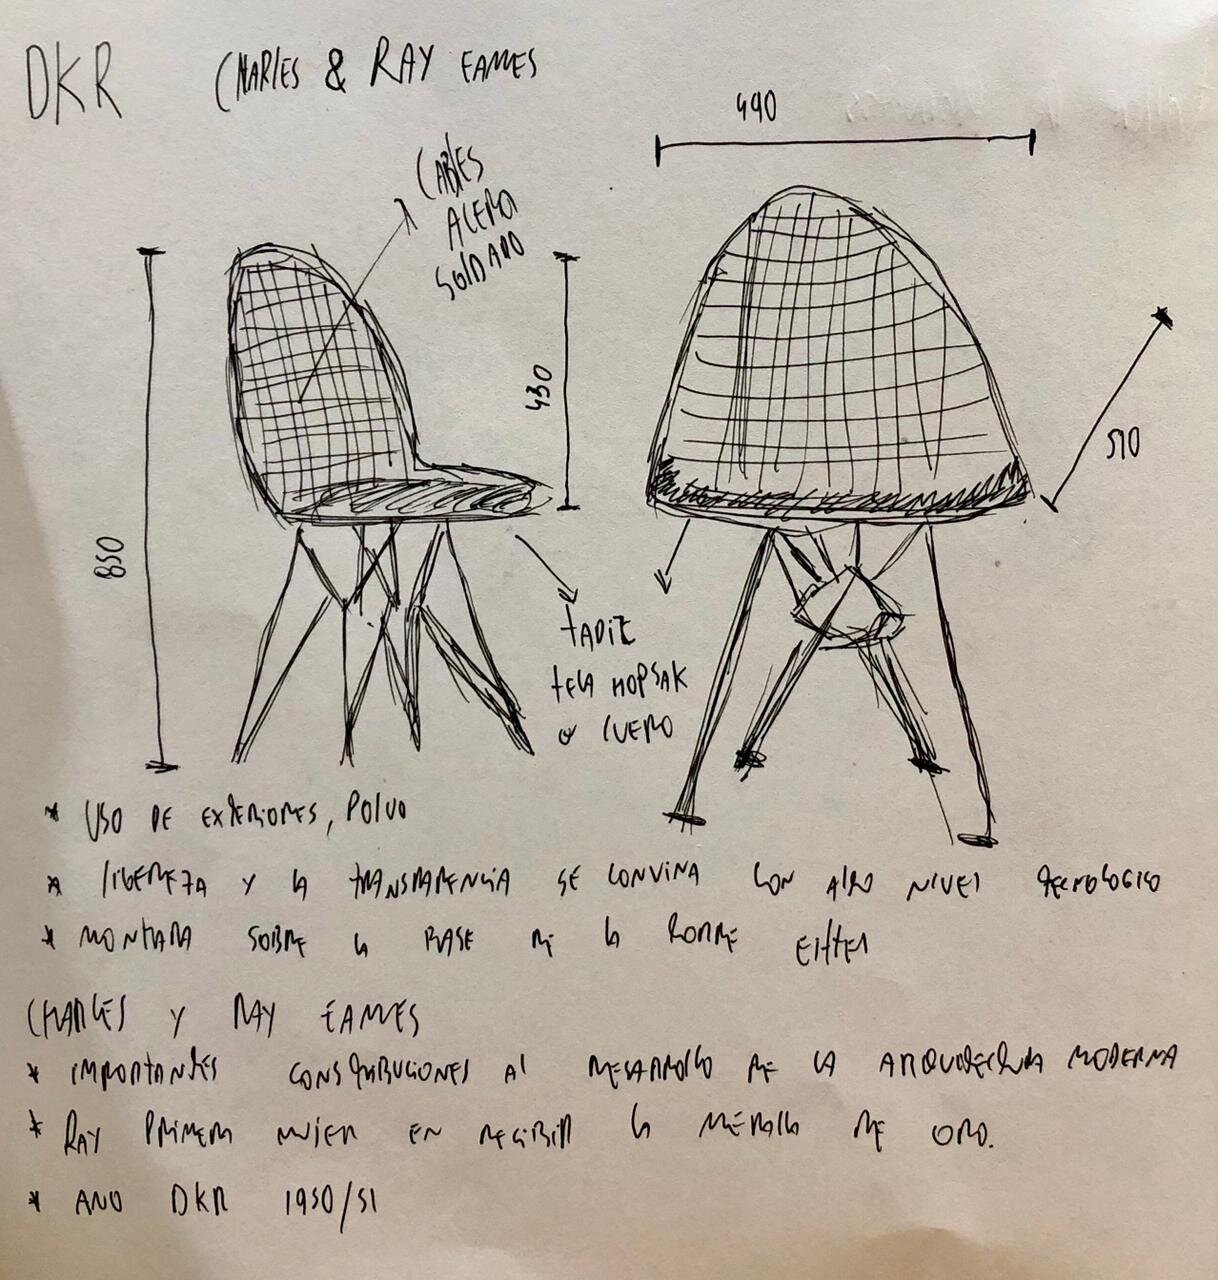 DKR
CHARLES & RAY EAMES
490
CABLES
ACERO
SOLDADO
430
510
850
TAPIZ
TELA HOPSAK
O CUERO
* USO DE EXTERIORES, POLVO
* LIGEREZA Y LA TRANSPARENCIA SE CONVINA CON ALTO NIVEL TECNOLOGICO
* MONTADA SOBRE LA BASE DE LA TORRE EIFFEL
CHARLES Y RAY EAMES
* IMPORTANTES CONSTRIBUCIONES AL DESARROLLO DE LA ARQUITECTURA MODERNA
* RAY PRIMERA MUJER EN RECIBIR LA MEDALLA DE ORO.
* ANO DKR 1950/51